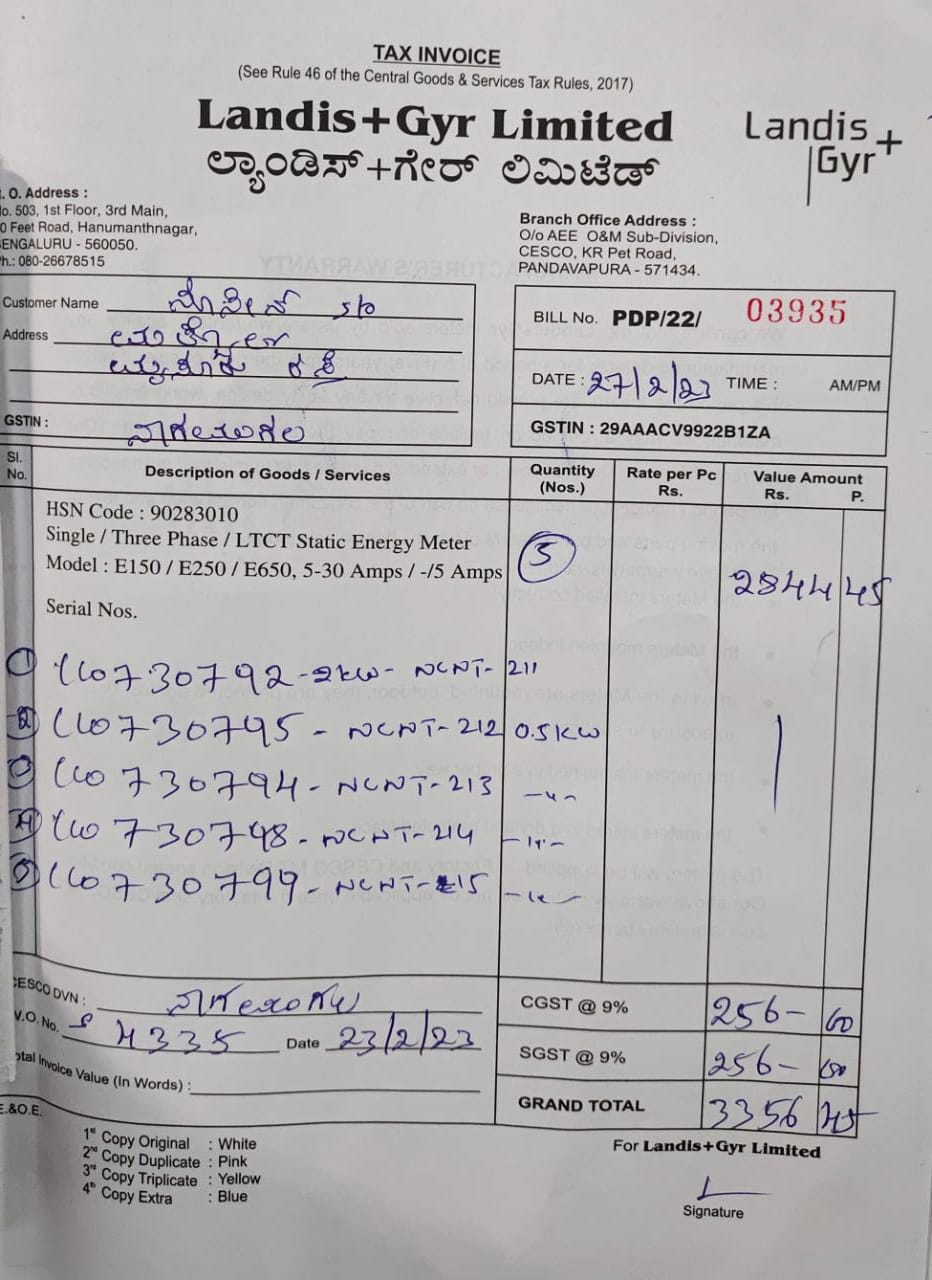 TAX INVOICE
(See Rule 46 of the Central Goods & Services Tax Rules, 2017)
Landis+Gyr Limited
ಲ್ಯಾಂಡಿಸ್+ಗೇರ್ ಲಿಮಿಟೆಡ್
Landis+Gyr
. O. Address :
No. 503, 1st Floor, 3rd Main,
0 Feet Road, Hanumanthnagar,
BENGALURU - 560050.
Ph.: 080-26678515
Branch Office Address :
O/o AEE O&M Sub-Division,
CESCO, KR Pet Road,
PANDAVAPURA - 571434.
Customer Name S/o
Address
GSTIN :
BILL No. PDP/22/ 03935
DATE : 27/2/23 TIME : AM/PM
GSTIN : 29AAACV9922B1ZA
Sl. No. Description of Goods / Services Quantity (Nos.) Rate per Pc Rs. Value Amount Rs. P.
HSN Code : 90283010
Single / Three Phase / LTCT Static Energy Meter
Model : E150 / E250 / E650, 5-30 Amps / -/5 Amps 5 2844 45
Serial Nos.
730792 - 2KW - NCNT-211
730795 - NCNT-212 0.5KW
730794 - NCNT-213 -"-
730798 - NCNT-214 -"-
730799 - NCNT-215 -"-
CESCO DVN :
W.O. No. 4335 Date 23/2/23
Total Invoice Value (In Words) :
CGST @ 9% 256- 00
SGST @ 9% 256- 00
GRAND TOTAL 3356 45
E.&O.E.
1st Copy Original : White
2nd Copy Duplicate : Pink
3rd Copy Triplicate : Yellow
4th Copy Extra : Blue
For Landis+Gyr Limited
Signature